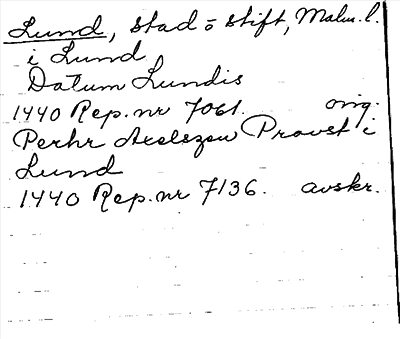 Lund, stad o stift, Malm. l.
i Lund
Datum Lundis
1440 Rep. nr 7061. orig.
Pechr Axelszon Provst i
Lund
1440 Rep. nr 7136. avskr.